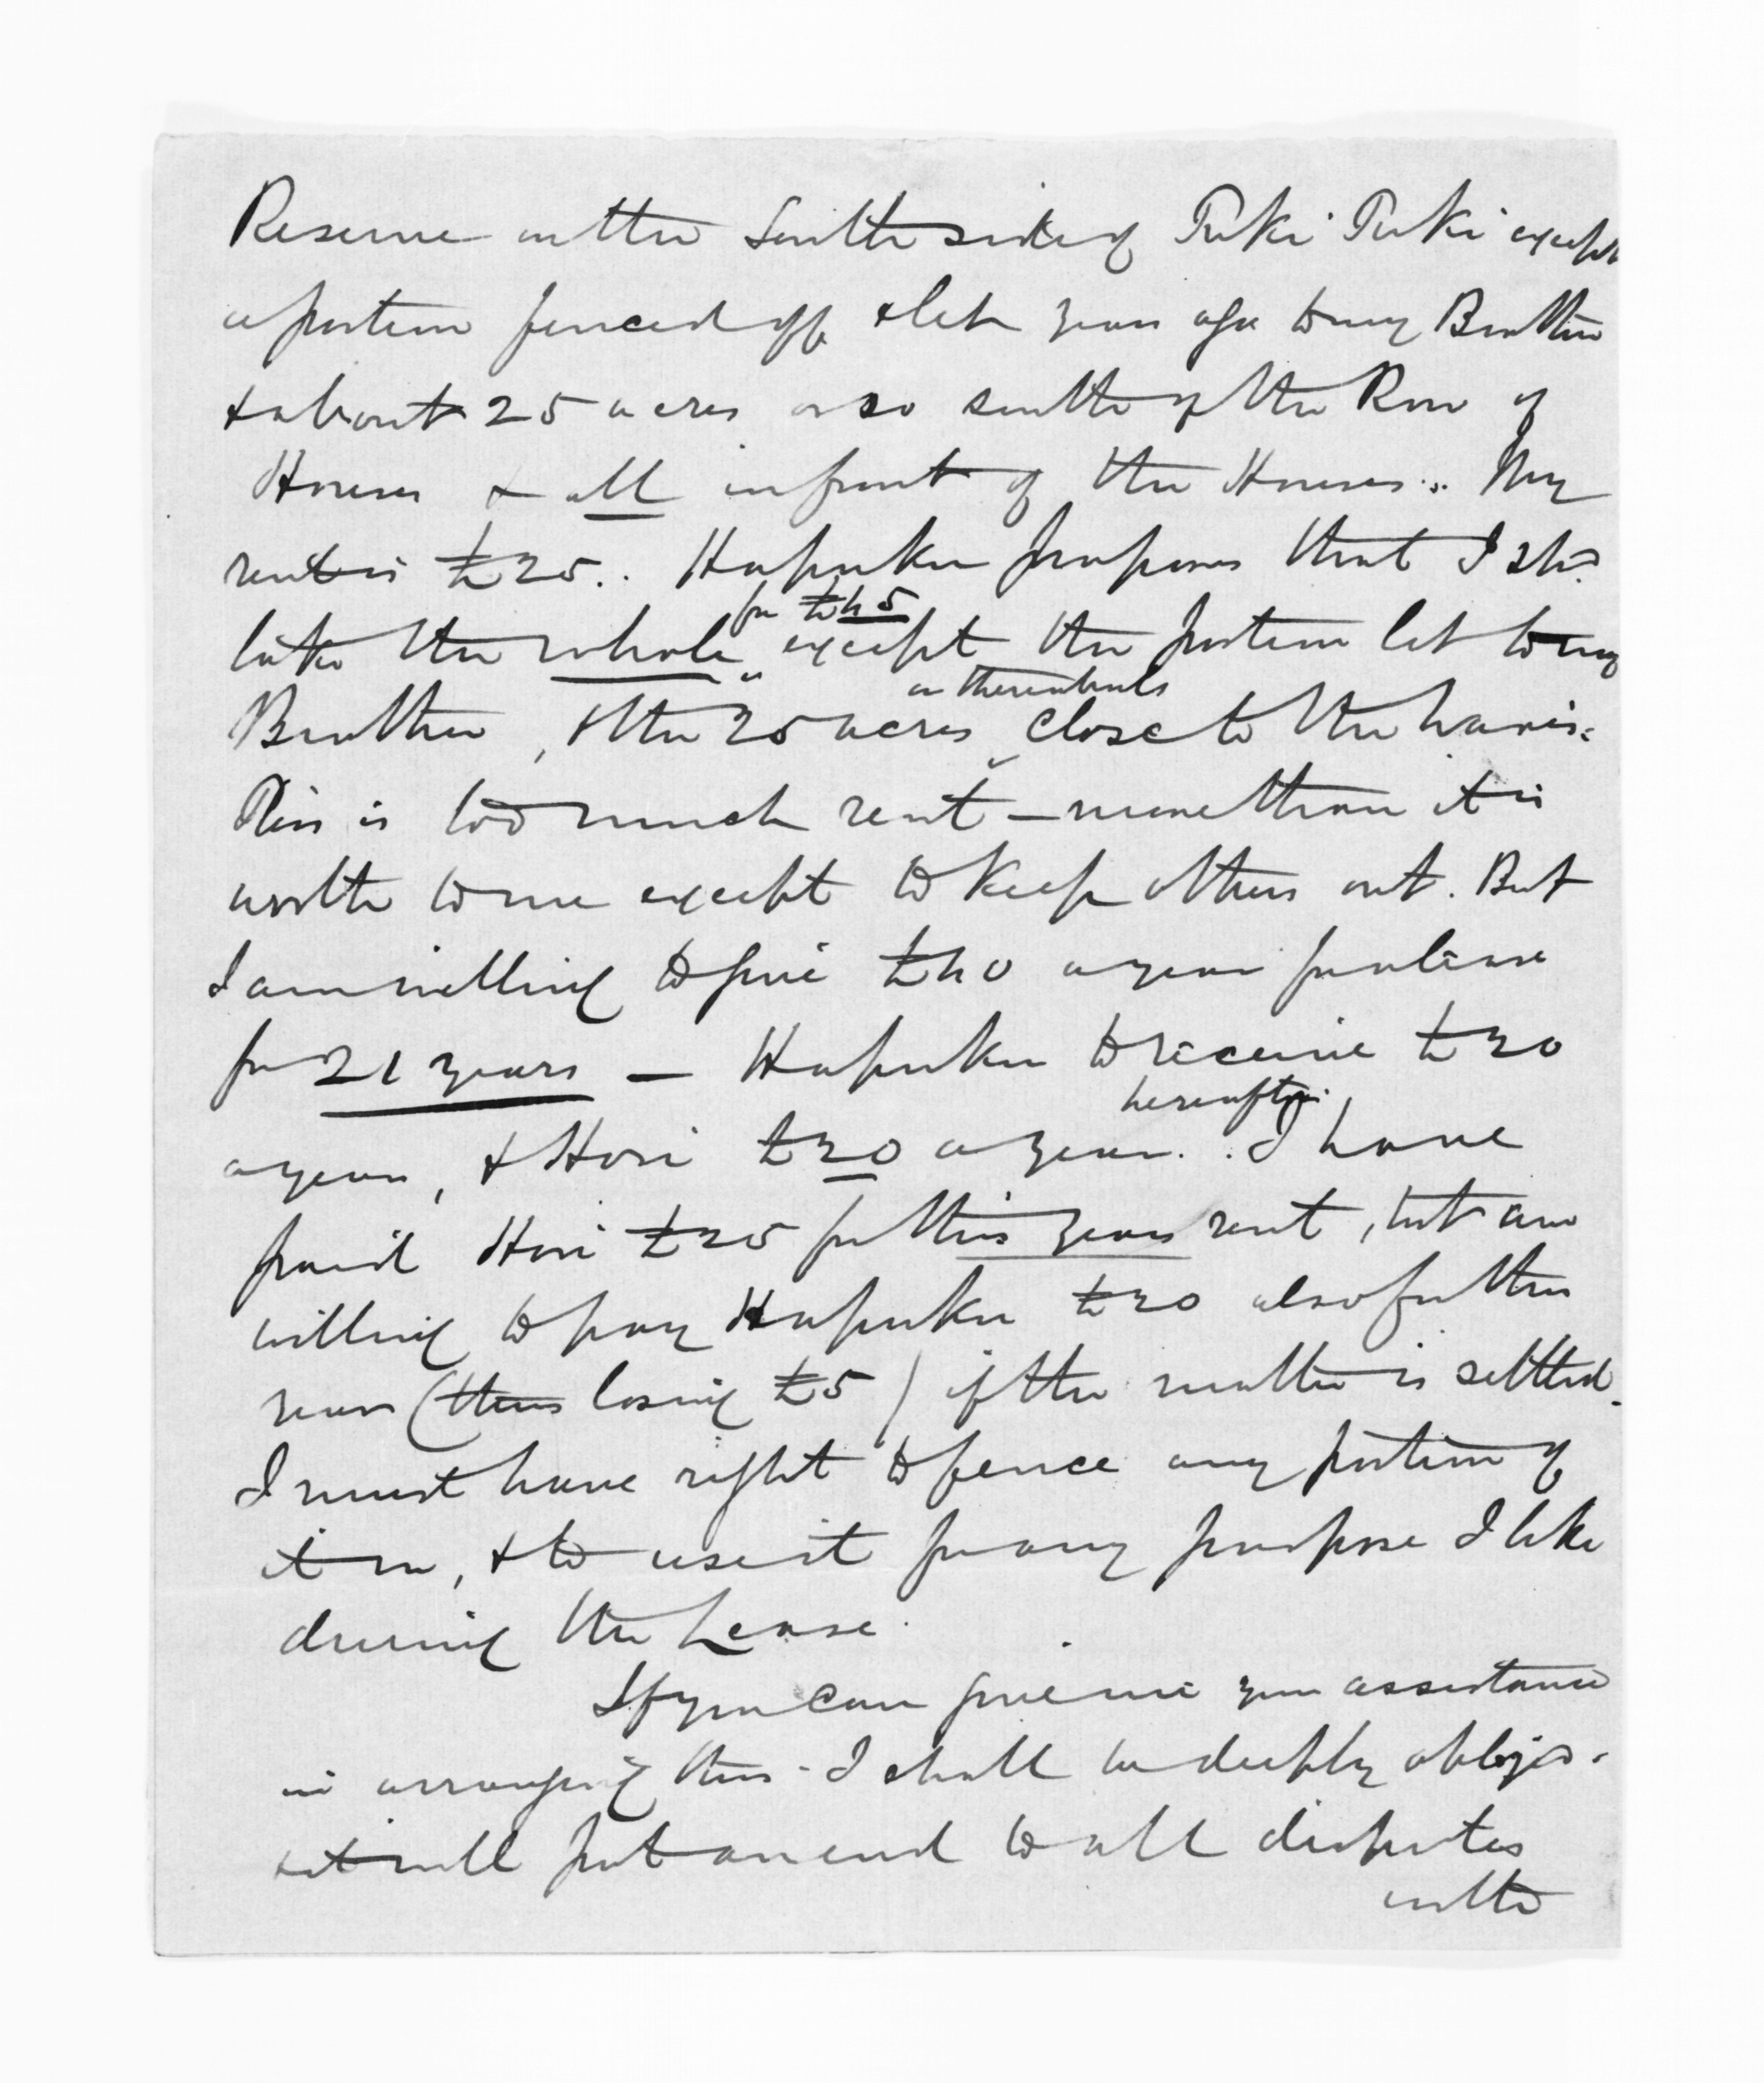 Reserve on the South side of Tuki Tuki except
a portion fenced off & let years ago to my Brother
& about 25 acres or so south of the Row of
Houses & all in front of the Houses. My
rent is £25. Hapuku proposes that I shd
for £45
take the whole except the portion let to my
or thereabouts
Brother, & the 25 acres close to the wares.
This is too much rent - more than it is
worth to me except to keep others out. But
I am willing to give £40 a year for a lease
for 21 years - Hapuku to receive £20
hereafter.
a year, & Hori £20 a year. I have
paid Hori £25 for this years rent, but am
willing to pay Hapuku £20 also for this
year (thus losing £5) if the matter is settled.
I must have right to fence any portion of
it in, & to use it for any purpose I like
during the Lease.
If you can give me your assistance
in arranging this I shall be deeply obliged.
& it will put an end to all disputes
with